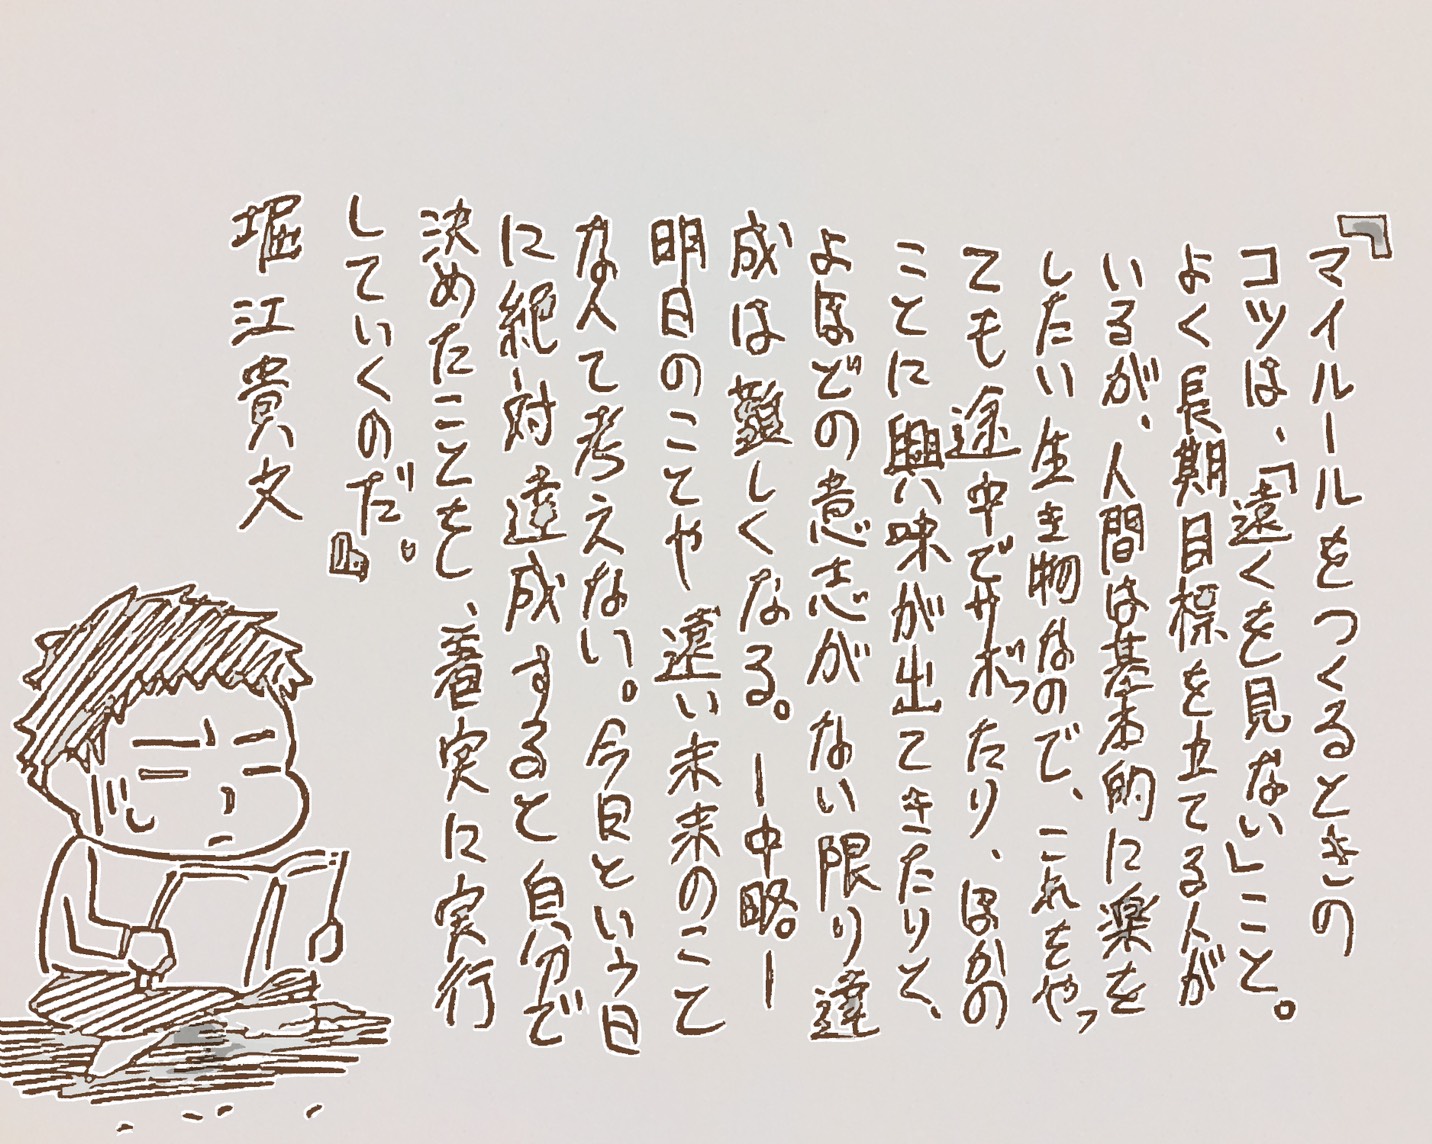 『マイルールをつくるときの
コツは、「遠くを見ない」こと。
よく長期目標を立てる人が
いるが、人間は基本的に楽を
したい生き物なので、これをやっ
ても途中でサボったり、ほかの
ことに興味が出てきたりと、
よほどの意志がない限り達
成は難しくなる。ー中略ー
明日のことや遠い未来のこと
なんて考えない。今日という日
に絶対達成すると自分で
決めたことをし、着実に実行
していくのだ。』
堀江貴文